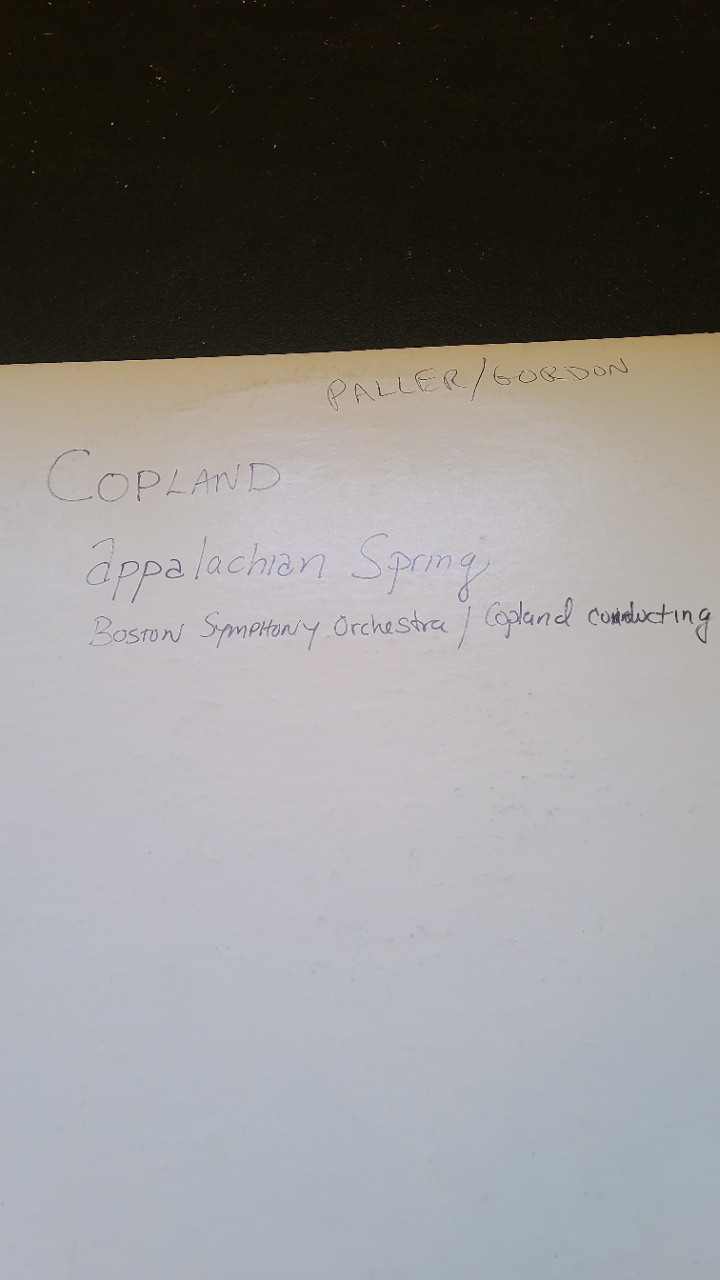 PALLER/GORDON
COPLAND
appalachian Spring
BOSTON SYMPHONY Orchestra / Copland conducting